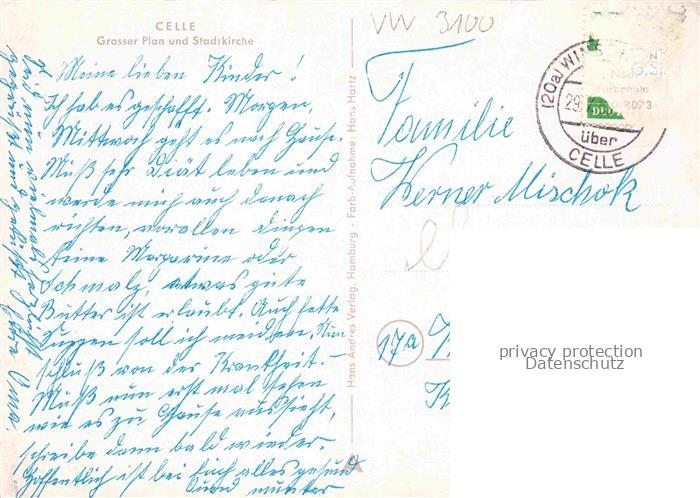 CELLE
Grosser Plan und Stadtkirche
Meine lieben Kinder!
Ich hab es geschafft. Morgen,
Mittwoch geht es nach Hause.
Muß sehr Diät leben und
werde mich auch danach
richten, vor allen Dingen
keine Margarine oder
Schmalz, etwas gute
Butter ist erlaubt. Auch fette
Suppen soll ich meiden. Nun
schluß von der Krankheit. –
Muß nun erst mal sehen
wie es zu Hause aussieht,
schreibe dann bald wieder.
Hoffentlich ist bei Euch alles gesund
und munter
Euch nun vielmals herzlichst
gegrüßt und geküßt Eure Oma.
Hans Andres Verlag, Hamburg - Farb-Aufnahme: Hans Hartz
VW 3100
(20a) WINS
29.
über
CELLE
Familie
Werner Mischok
17a
privacy protection
Datenschutz